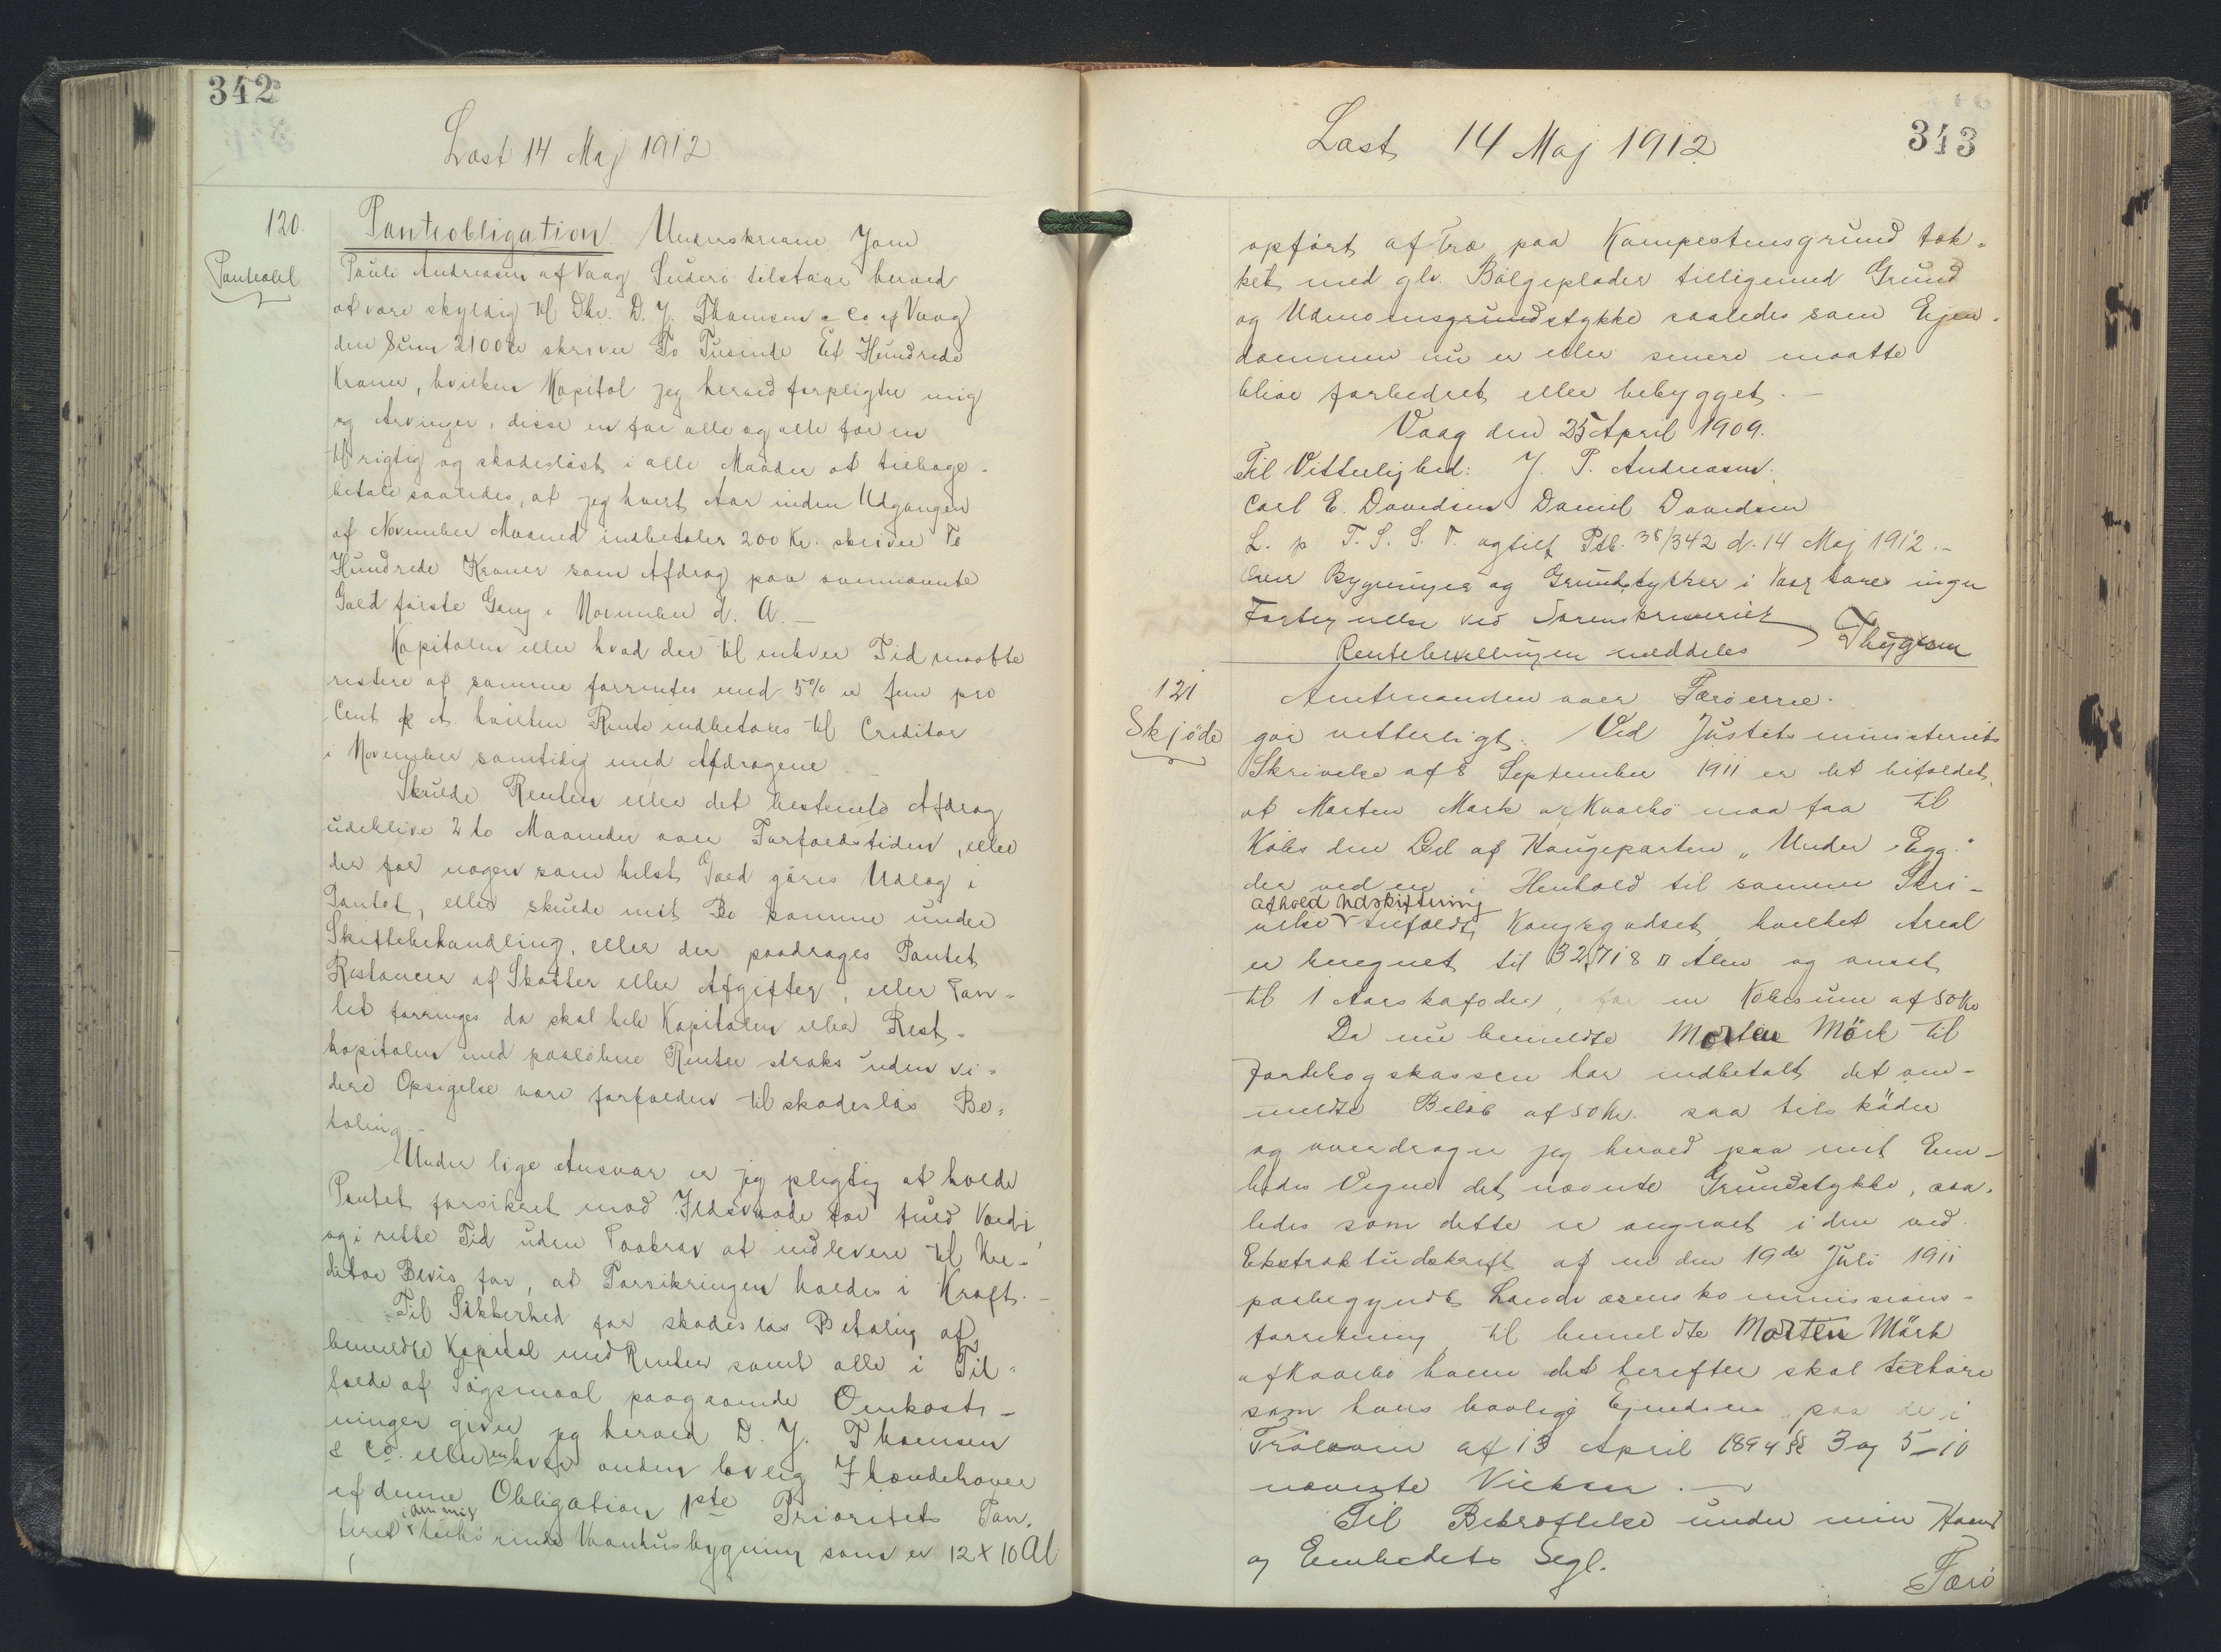 342
Læst 14 Maj 1912
120.
Panteobl
Panteobligation Underskrevne Joen
Pauli Andreasen af Vaag Suderö tilstaar herved
at være skyldig til Dhr. D. J. Thomsen & Co af Vaag
den Sum 2100 Kr skriver To Tusinde Et Hundrede
Kroner, hvilken Kapital jeg herved forpligter mig
og Arvinger, disse en for alle og alle for en
til rigtig og skadeslöst i alle Maader at tilbage-
betale saaledes, at jeg hvert Aar inden Udgangen
af November Maaned indbetaler 200 Kr. skriver To
Hundrede Kroner som Afdrag paa ovennævnte
Gæld förste Gang i November d. A. —
Kapitalen eller hvad der til enhver Tid maatte
restere af samme forrentes med 5% er fem pro
Cent p. A. hvilken Rente indbetales til Creditor
i November samtidig med Afdragene —
Skulde Renten eller det bestemte Afdrag
udeblive 2 to Maaneder over Forfaldstiden, eller
der for nogen som helst Gæld göres Udlæg i
Pantet, eller skulde mit Bo komme under
Skiftebehandling, eller der paadrages Pantet
Restancer af Skatter eller Afgifter, eller Pan-
tet forringes da skal hele Kapitalen eller Rest-
kapitalen med paalöbne Renter straks uden vi-
dere Opsigelse være forfalden til skadeslös Be-
taling. —
Under lige Ansvar er jeg pligtig at holde
Pantet forsikret mod Ildsvaade for fuld Værdi,
og i rette Tid uden Paakrav at indlevere til Kre-
ditor Bevis for, at Forsikringen holdes i Kraft. —
Til Sikkerhed for skadeslös Betaling af
bemeldte Kapital med Renter samt alle i Til-
fælde af Sögsmaal paagaaende Omkost-
ninger giver jeg herved D. J. Thomsen
& Co. eller enhver anden lovlig Ihændehaver
af denne Obligation 1ste Prioritets Pan-
teret i den mig tilhörende Vaanhusbygning som er 12 x 10 Al
Læst 14 Maj 1912
343
opfört af Træ paa Kampestensgrund tæk-
ket med glv. Bölgeplader tilligemed Grund
og Udmarksgrundstykke saaledes som Ejen-
dommen nu er eller senere maatte
blive forbedret eller bebygget. —
Vaag den 25 April 1909.
Til Vitterlighed: J. P. Andreasen.
Carl E. Davidsen Daniel Davidsen
L. p. T. S. S. T. og tilf Ptb. 38/342 d. 14 Maj 1912. —
Over Bygninger og Grundstykker i Vaag haves ingen
Fortegnelse ved Sorenskriveriet
Rentebevillingen meddeles Thygesen
121
Skjöde
Amtmanden over Færöerne.
gör vitterligt: Ved Justitsministeriets
Skrivelse af 8 September 1911 er det bifaldet,
at Morten Mörk af Kvarbö maa faa til
Köbs den Del af Haugeparten „Under Egg"
der ved en i Henhold til samme Skri-
afholdt Udskiftning
velse tilfaldt Kongsgodset, hvilket Areal
er beregnet til 32,718 □ Alen og ansat
til 1 Aars kafoder, for en Köbesum af 50 Kr
Da nu bemeldte Morten Mörk til
Jordebogskassen har indbetalt det om-
meldte Belöb af 50 Kr. saa tilsköder
og overdrager jeg herved paa mit Em-
bedes Vegne det nævnte Grundstykke, saa-
ledes som dette er angivet i den ved
Ekstraktudskrift af en den 19de Juli 1911
paabegyndt Landvæsenskommissions-
forretning til bemeldte Morten Mörk
af Kvarbö hvem det herefter skal tilhöre
som hans lovlige Ejendom paa de i
Frölovn af 13 April 1894 §§ 3 og 5-10
nævnte Vilkaar. —
Til Bekræftelse under min Haand
og Embedets Segl.
Færö